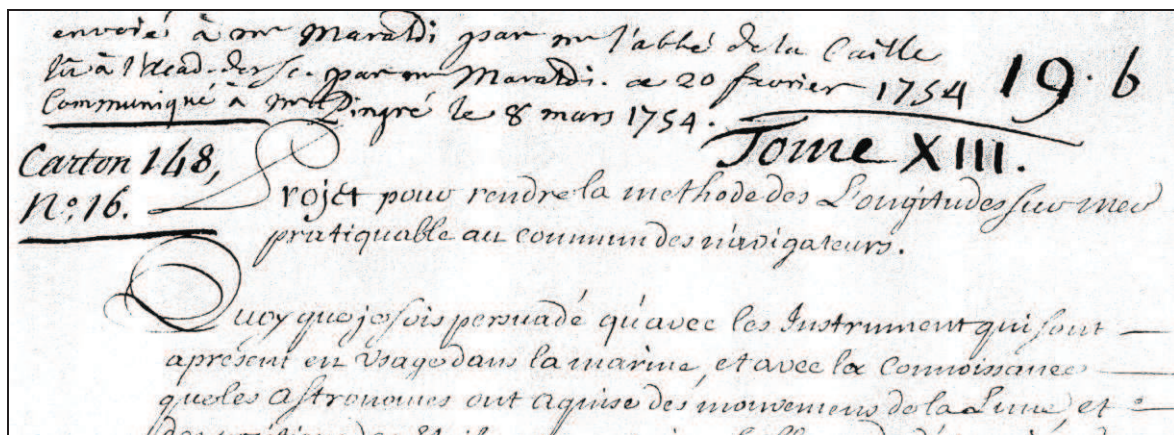 envoié à mr Maraldi par mr l'abbé de la Caille
lû à l'Acad. des sc. par mr Maraldi. ce 20 fevrier 1754
Communiqué à mr Pingré le 8 mars 1754.
19. 6
Tome XIII.
Carton 148,
No. 16.
Projet pour rendre la methode des Longitudes sur mer
pratiquable au commun des navigateurs.
Quoy que je sois persuadé qu'avec les Instrument qui sont
apresent en usage dans la marine, et avec la Connoissance
que les Astronomes ont aquise des mouvemens de la Lune, et